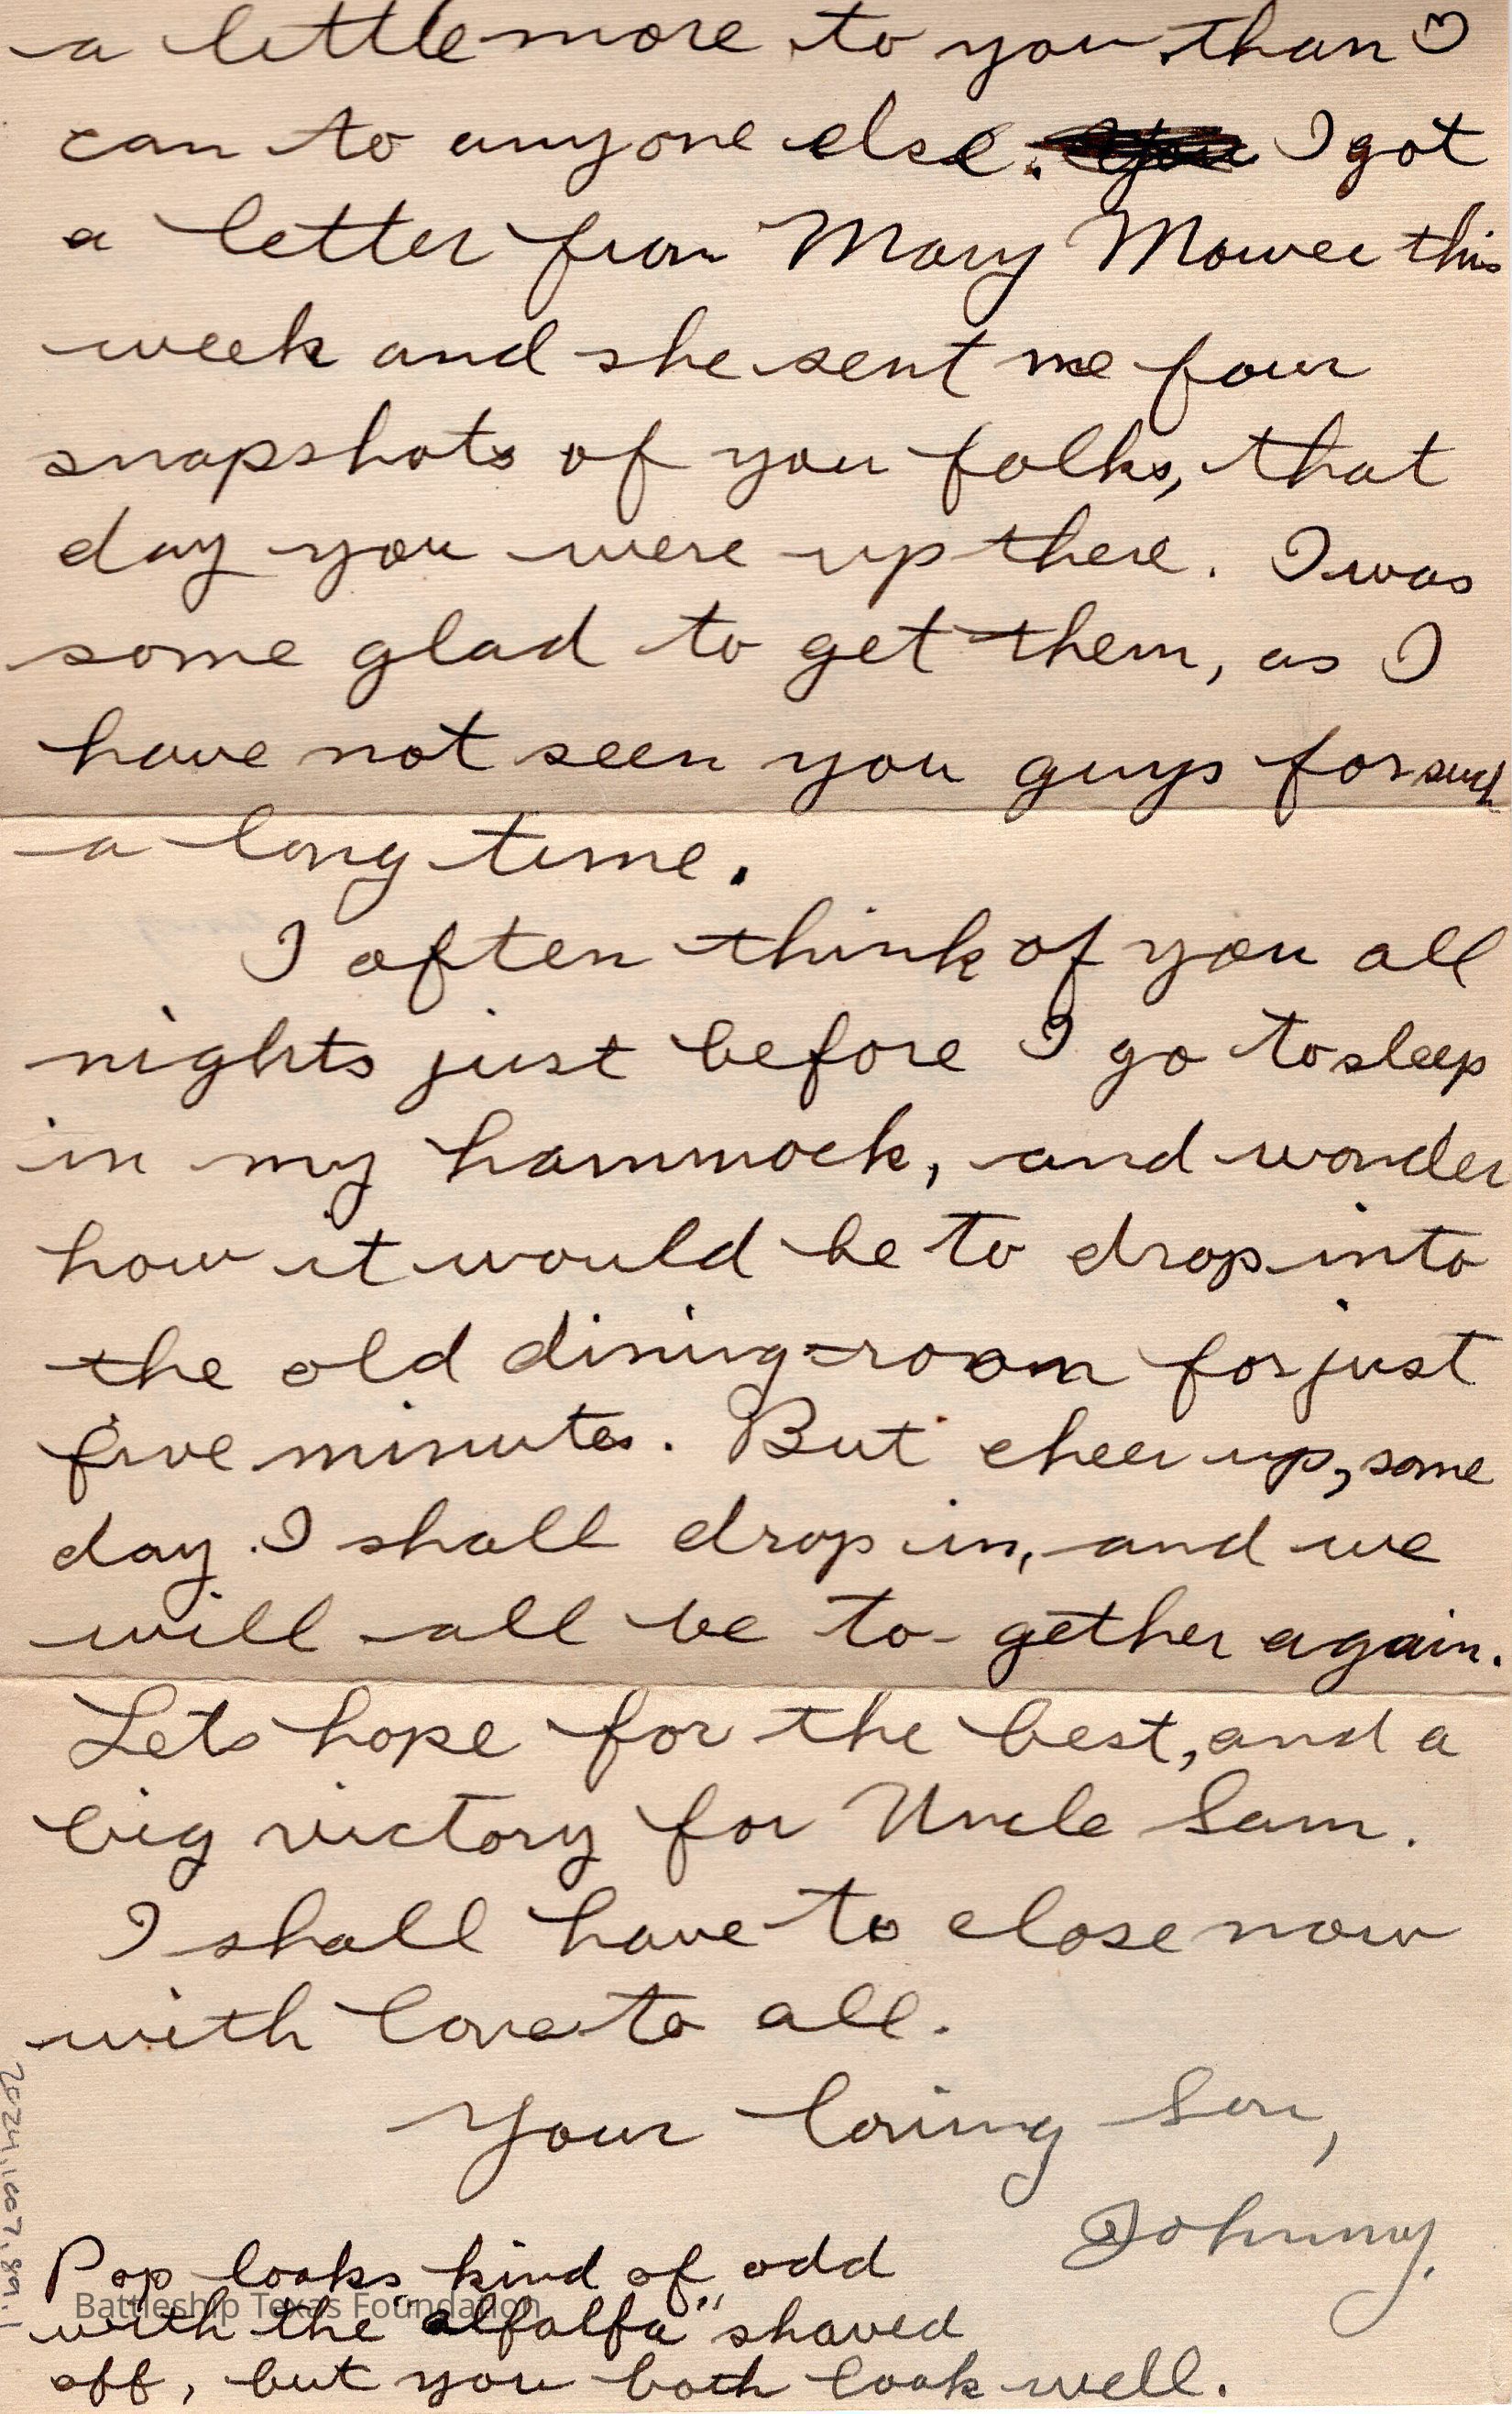 a little more to you than I
can to anyone else. I got
a letter from Mary Mower this
week and she sent me four
snapshots of you folks, that
day you were up there. I was
some glad to get them, as I
have not seen you guys for such
a long time.
I often think of you all
nights just before I go to sleep
in my hammock, and wonder
how it would be to drop into
the old dining-room for just
five minutes. But cheer up, some
day I shall drop in, and we
will all be to-gether again.
Lets hope for the best, and a
big victory for Uncle Sam.
I shall have to close now
with love to all.
Your loving Son,
Johnny.
Pop looks kind of odd
with the "alfalfa" shaved
off, but you both look well.
Battleship Texas Foundation
2024.1007.89.1